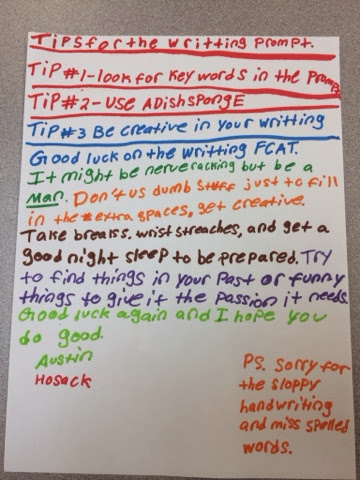 Tips for the writting Prompt.
TiP #1-look for key words in the Prompt
TiP #2-USE ADishSPongE
TiP #3 Be creative in your writting
Good luck on the writting FCAT.
It might be nerve racking but be a
Man. Don't us dumb stuff just to fill
in the extra spaces, get creative.
Take breakss, wrist streaches, and get a
good night sleep to be prepared. Try
to find things in your past or funny
things to give it the passion it needs
Good luck again and I hope you
do good.
Austin
Hosack
PS. Sorry for
the sloppy
handwriting
and miss spelled
words.